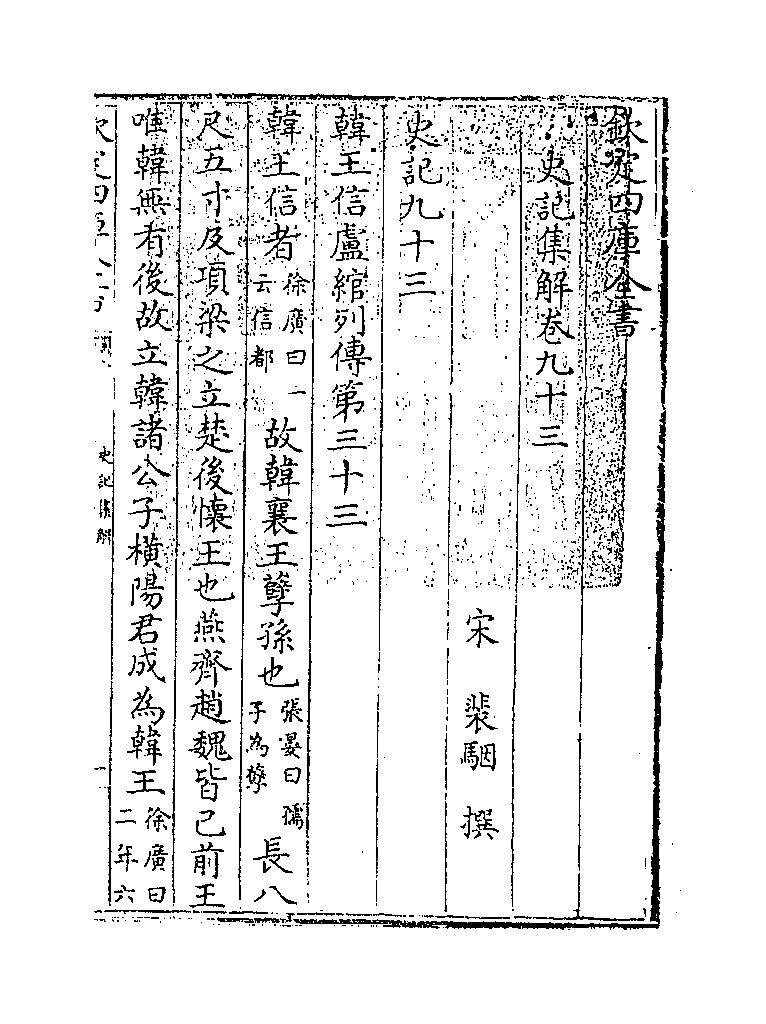 欽定四庫全書
史記集解卷九十三
宋 裴駰 撰
史記九十三
韓王信盧綰列傳第三十三
韓王信者徐廣曰一云信都故韓襄王孽孫也張晏曰孺子為孽長八
尺五寸及項梁之立楚後懷王也燕齊趙魏皆已前王
唯韓無有後故立韓諸公子橫陽君成為韓王徐廣曰二年六
欽定四庫全書 史記集解 一